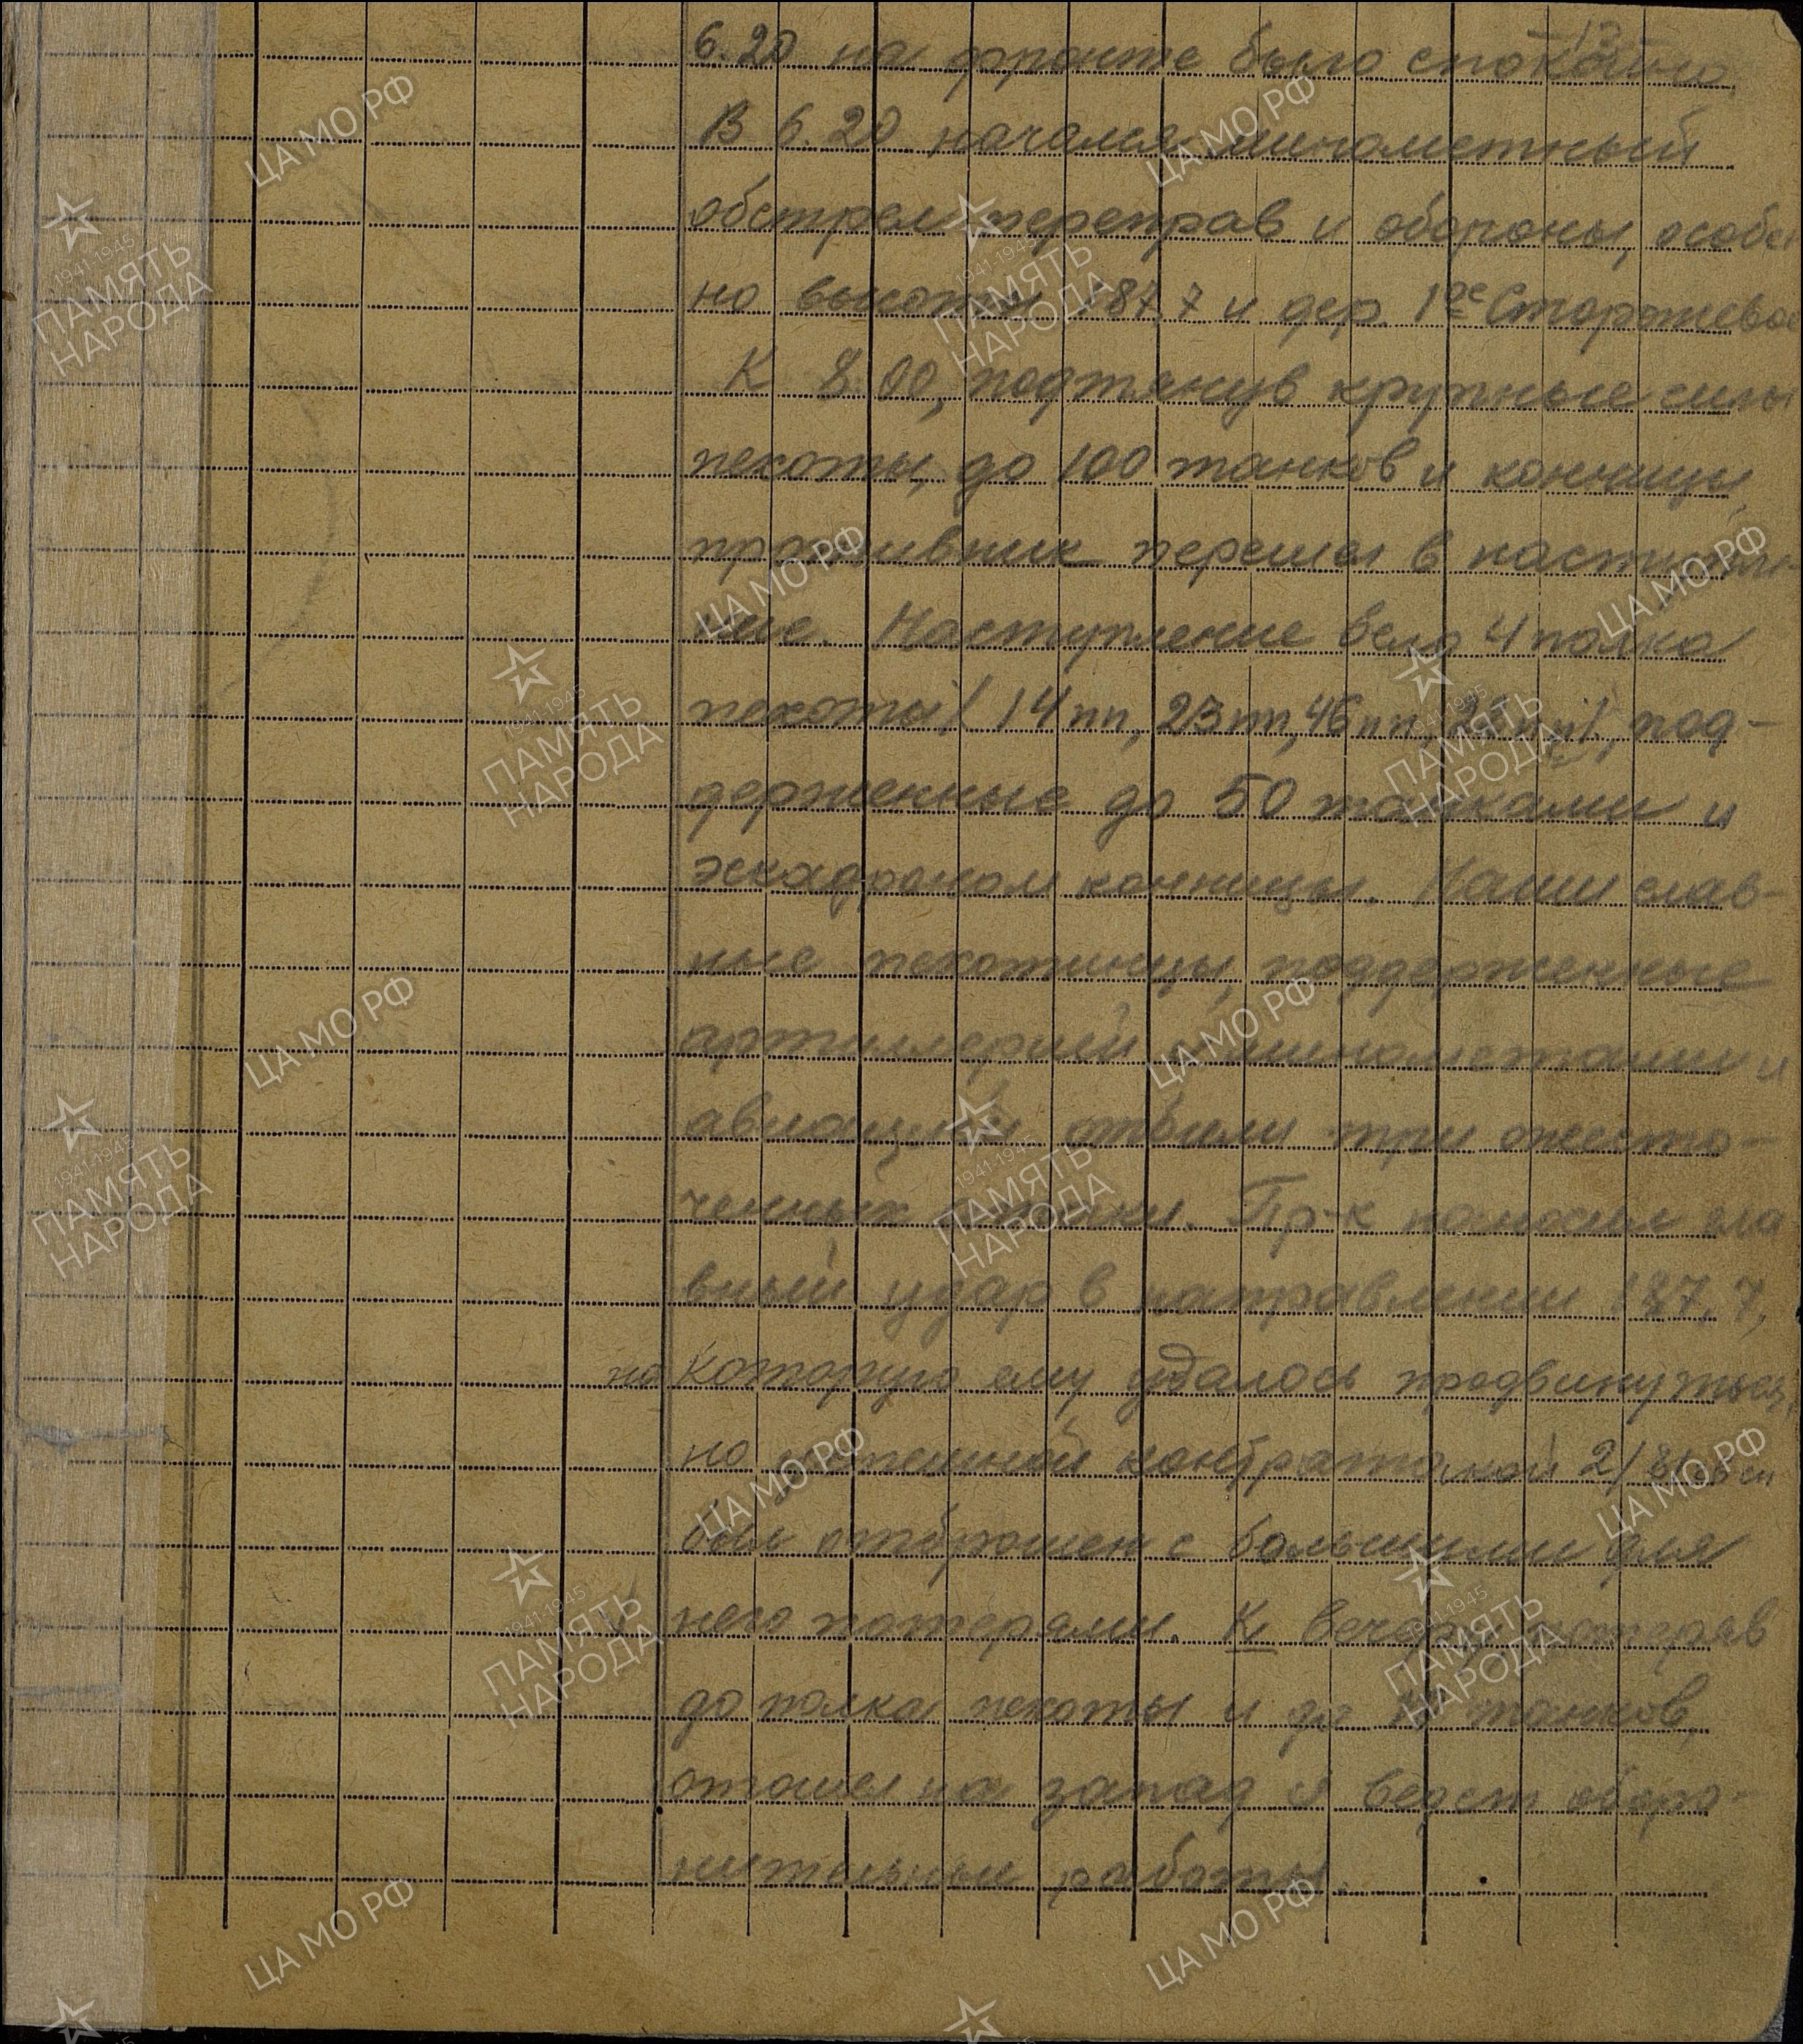 13
6.20 на фронте было спокойно
В 6.20 начался минометный
обстрел переправ и обороны, особен
но высоты 187,7 и дер. 1ое Сторожевое
К 8.00, подтянув крупные силы
пехоты, до 100 танков и конницы,
противник перешел в наступле
ние. Наступление вело 4 полка
пехоты / 14 пп, 23 пп, 46 пп, пп/, под-
держенные до 50 танками и
эскадроном конницы. Наши слав-
ные пехотинцы, поддерженные
артиллерией, минометами и
авиацией отбили три ожесто
ченных атаки. Пр-к наносил гла
вный удар в направлении 187,7,
на которую ему удалось продвинуться,
но контратакой 2/
был отброшен с большими для
него потерями. К вечеру, потеряв
до полка пехоты и до танков,
отошел на запад и ведет оборо-
нительные работы.
ЦА МО РФ
ПАМЯТЬ НАРОДА
1941-1945